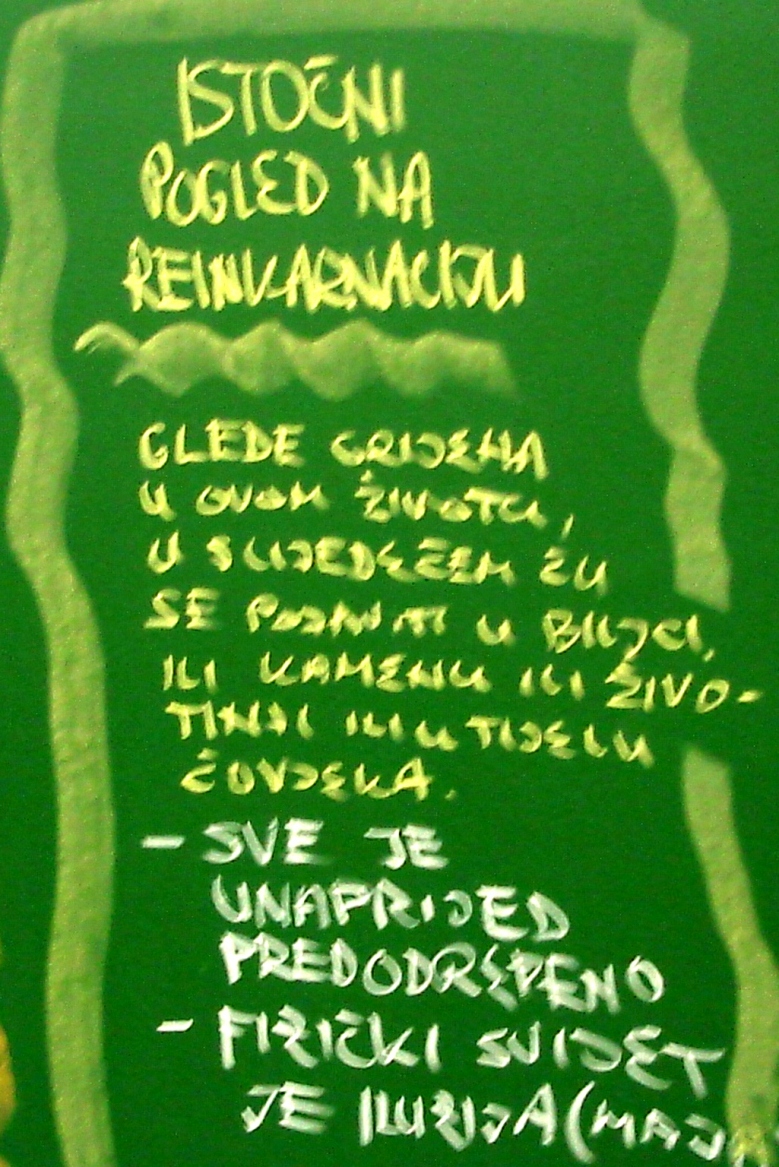 ISTOČNI
POGLED NA
REINKARNACIJU
GLEDE GRIJEHA
U OVOM ŽIVOTU,
U SLIJEDEĆEM ĆU
SE POJAVITI U BILJCI,
ILI KAMENU ILI ŽIVO-
TINJI ILI U TIJELU
ČOVJEKA.
- SVE JE
UNAPRIJED
PREDODREĐENO
- FIZIČKI SVIJET
JE ILUZIJA (MAJA